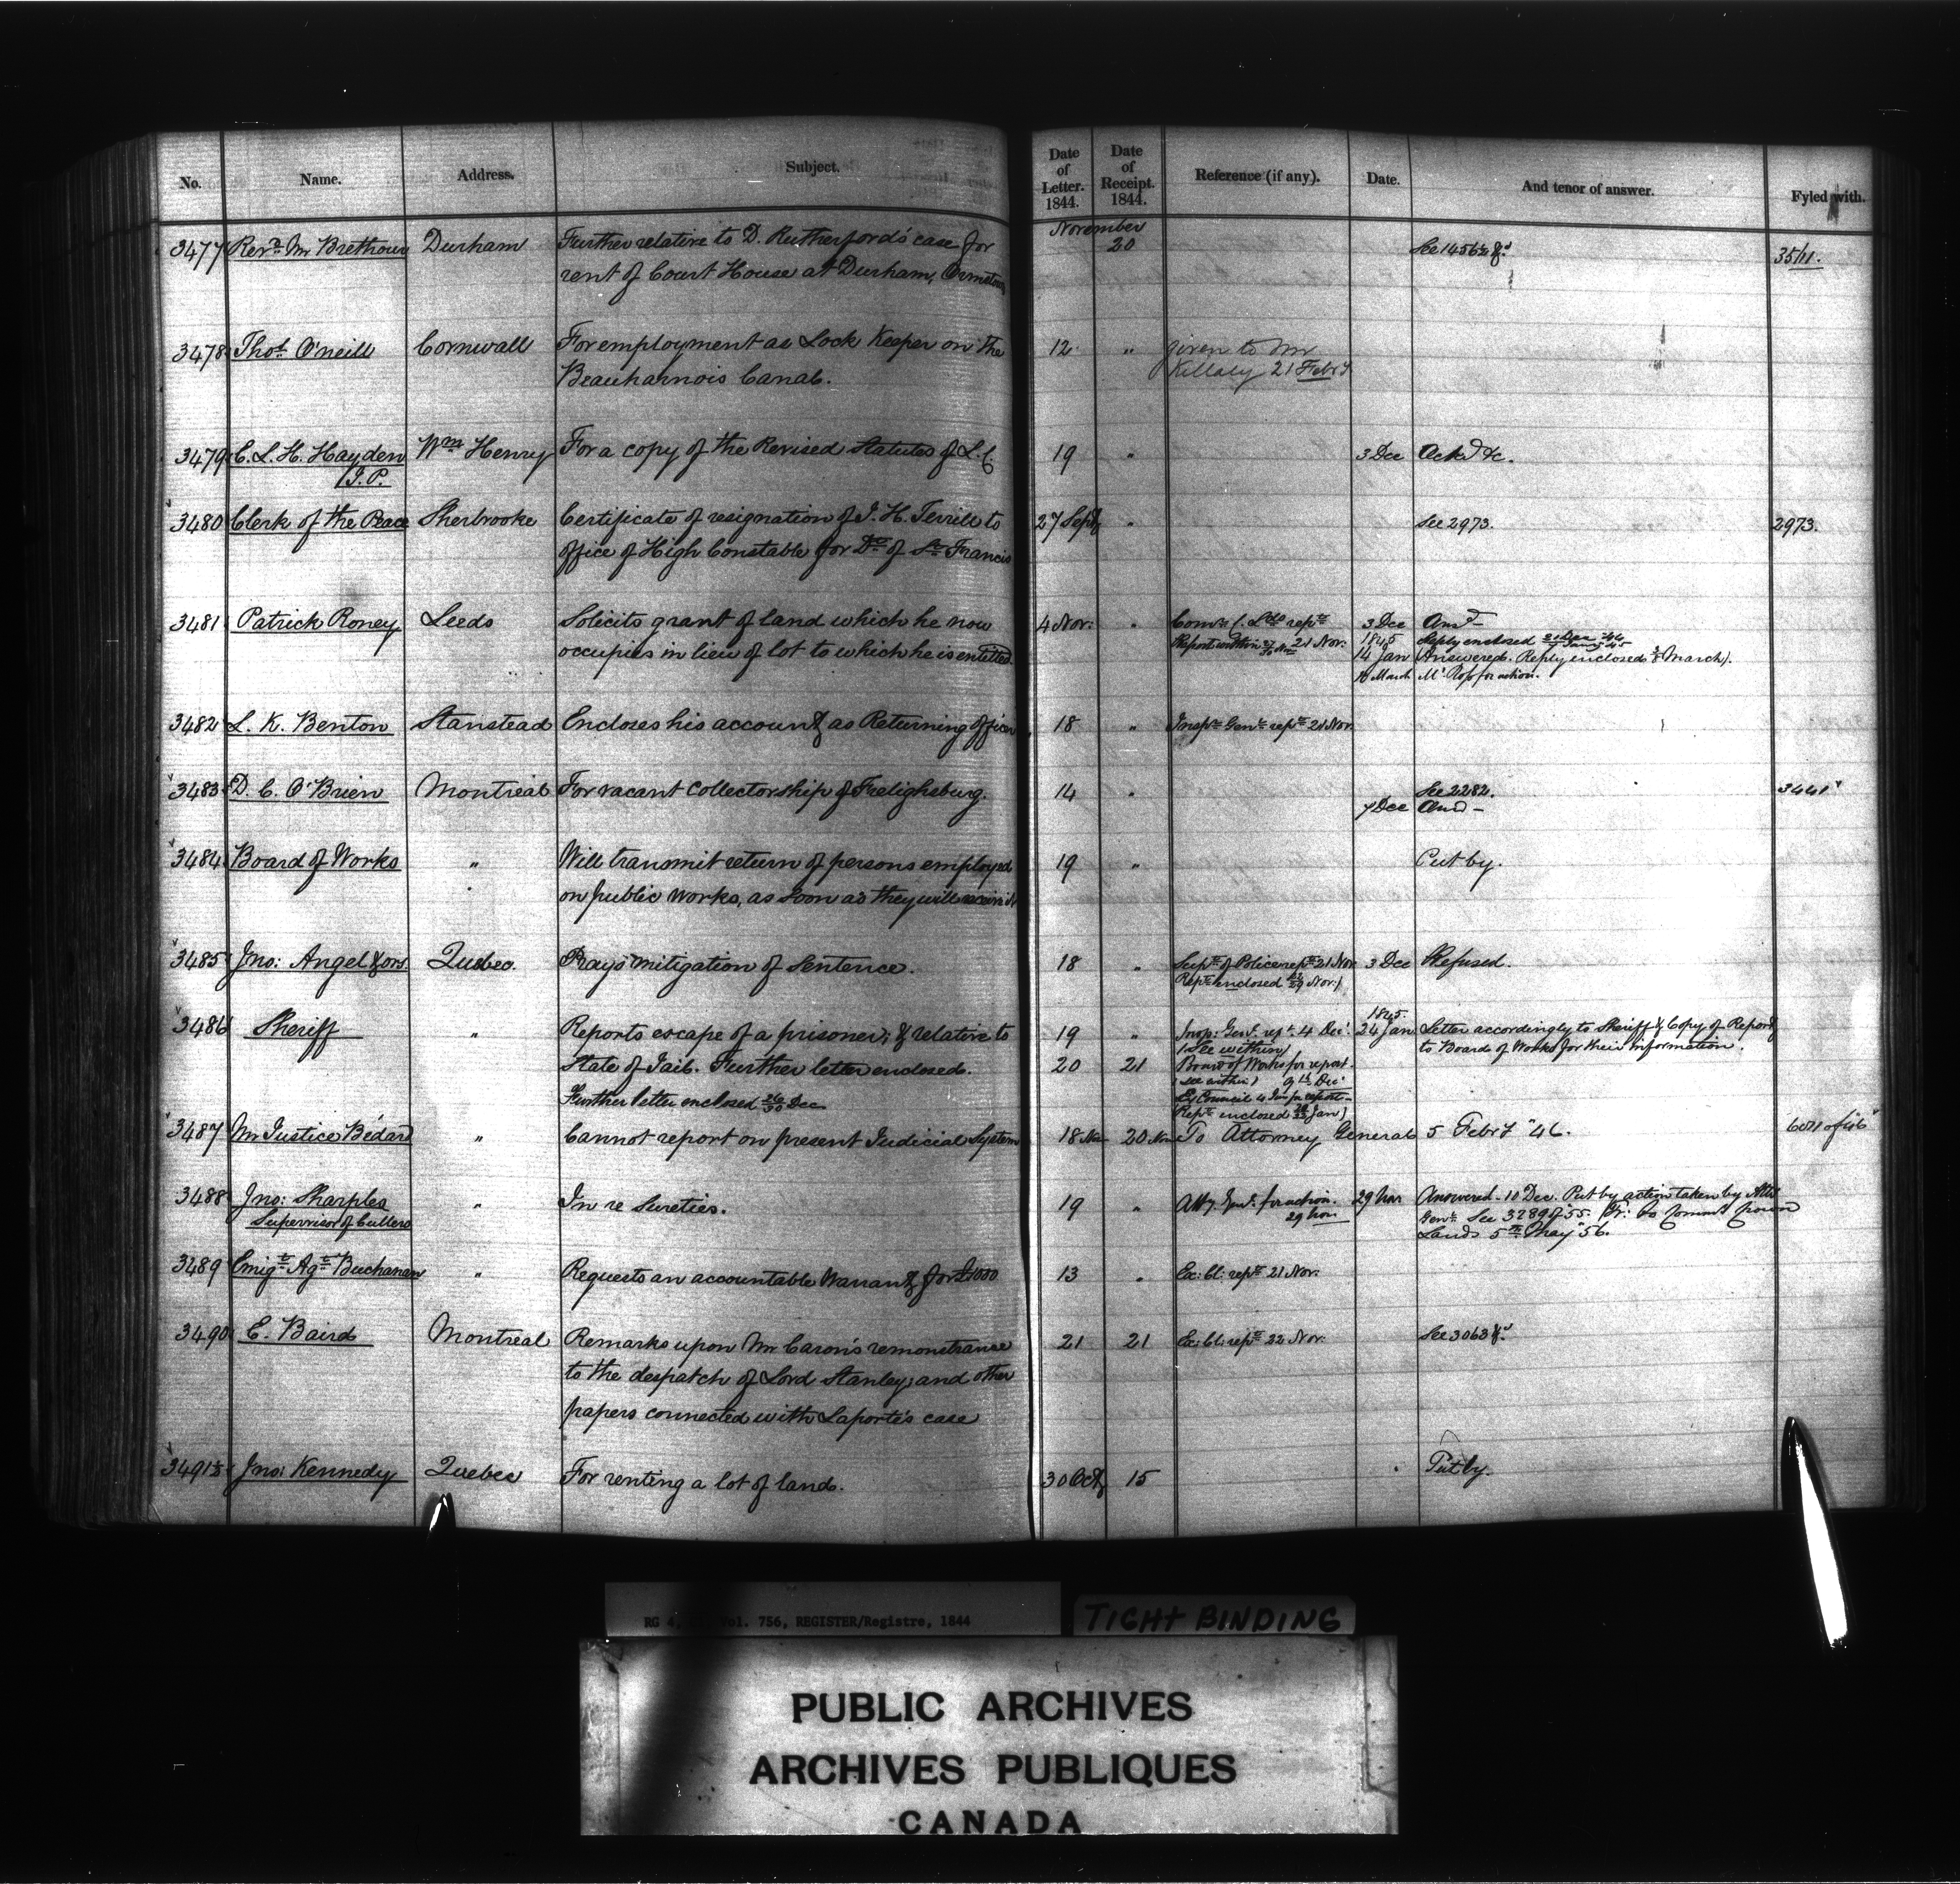 No. Name. Address. Subject. Date of Letter. 1844. Date of Receipt. 1844. Reference (if any). Date. And tenor of answer. Fyled with.
November
3477 Revd. Mr Brethour Durham Further relative to D. Rutherford's case for 20 See 1456½ &c 3511.
rent of Court House at Durham, Ormstown
3478 Thos. O'neill Cornwall For employment as Lock Keeper on the 12 " given to Mr
Beauharnois Canal. Killaly 21 Febry
3479 C. L. H. Hayden Wm Henry For a copy of the Revised Statutes of L. C. 19 " 3 Dec Ackd &c.
J. P.
3480 Clerk of the Peace Sherbrooke Certificate of resignation of J. H. Terrill to 27 Sept " See 2973. 2973.
office of High Constable for Do of St. Francis
3481 Patrick Roney Leeds Solicits grant of land which he now 4 Nov: " Comr. C. Lds rept. 3 Dec Ansd
occupies in lieu of lot to which he is entitled Report within 21 Nov. 1845 Reply enclosed
14 Jan Answered. Reply enclosed March).
March Mr. Ross for action.
3482 L. K. Benton Stanstead Encloses his account as Returning Officer 18 " Inspr. Genl. rept. 21 Nov.
3483 D. C. O'Brien Montreal For vacant Collectorship of Freligsburg. 14 " See 2282. 3441
7 Dec Ansd
3484 Board of Works " Will transmit return of persons employed 19 " Put by.
on public works, as soon as they will receive it
3485 Jno: Angel & ors. Quebec. Prays mitigation of Sentence. 18 " Supt. of Police rept. 21 Nov 3 Dec Refused.
Rept. enclosed Nov.)
1845.
3486 Sheriff " Reports escape of a prisoner; & relative to 19 " Insp: Genl. rept. 4 Dec. 24 Jan Letter accordingly to Sheriff & Copy of Report
(See within) to Board of Works for their information.
State of Jail. Further letter enclosed. 20 21 Board of Works for report.
(See within) 9th Dec
Further letter enclosed 26/30 Dec Ex Council for report
Rept. enclosed Jan)
3487 Mr Justice Bédard " Cannot report on present Judicial System 18 Nov 20 Nov To Attorney General 5 Febry "46.
3488 Jno: Sharples " In re Sureties. 19 " Atty. Genl. for action. 29 Nov Answered - 10 Dec. Put by action taken by Atty
Supervisor of Cullers 29 Nov Genl. See 3289 of '55. to Commr Crown
Lands 5th May "56.
3489 Emigt. Agt. Buchanan " Requests an accountable Warrant for £1000 13 " Ex: Cl: rept. 21 Nov.
3490 E. Baird Montreal Remarks upon Mr Caron's remonstrance 21 21 Ex: Cl: rept. 22 Nov: See 3063 &c
to the despatch of Lord Stanley, and other
papers connected with Laporte's case
3491½ Jno: Kennedy Quebec For renting a lot of land. 30 Oct 15 Put by.
RG 4, Vol. 756, REGISTER/Registre, 1844
TIGHT BINDING
PUBLIC ARCHIVES
ARCHIVES PUBLIQUES
CANADA